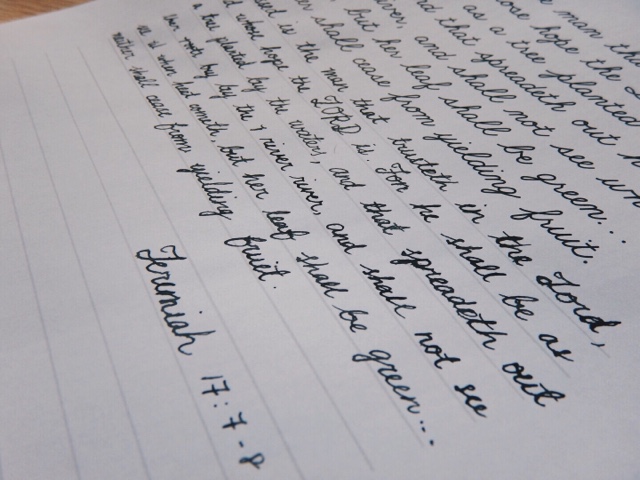 man
hope the
as a tree planted
that spreadeth out
and shall not see
but her leaf shall be green...
shall cease from yielding fruit.
is the man that trusteth in the Lord,
whose hope the LORD is. For he shall be as
a tree planted by the water, and that spreadeth out
roots by by the river river, and shall not see
when heat cometh, but her leaf shall be green...
shall cease from yielding fruit.
Jeremiah 17:7-8